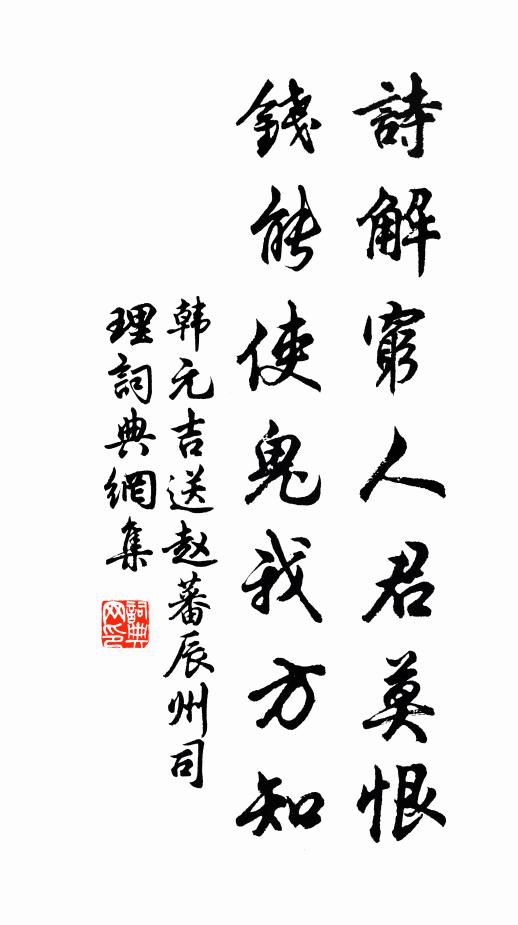 詩解窮人君莫恨
錢能使鬼我方知
韩元吉送赵蕃辰州司
理詞典網集
詞典网印